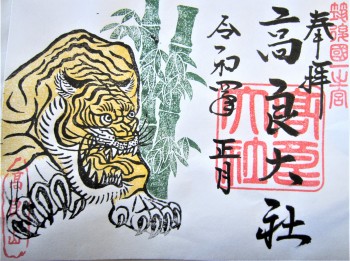 筑後國一之宮
奉拝
高良大社
高良大社
令和四年 正月
高良山